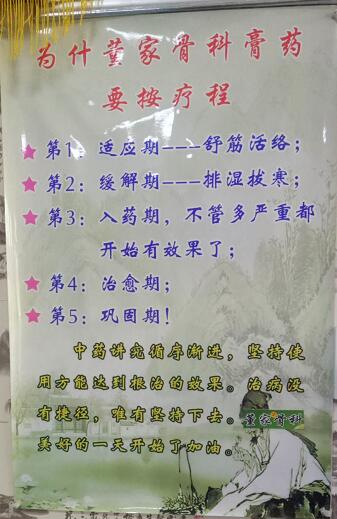 为什董家骨科膏药
要按疗程
★第1：适应期---舒筋活络；
★第2：缓解期---排湿拔寒；
★第3：入药期，不管多严重都
开始有效果了；
★第4：治愈期；
★第5：巩固期！
中药讲究循序渐进，坚持使
用方能达到根治的效果。治病没
有捷径，唯有坚持下去。董家骨科
美好的一天开始了加油。